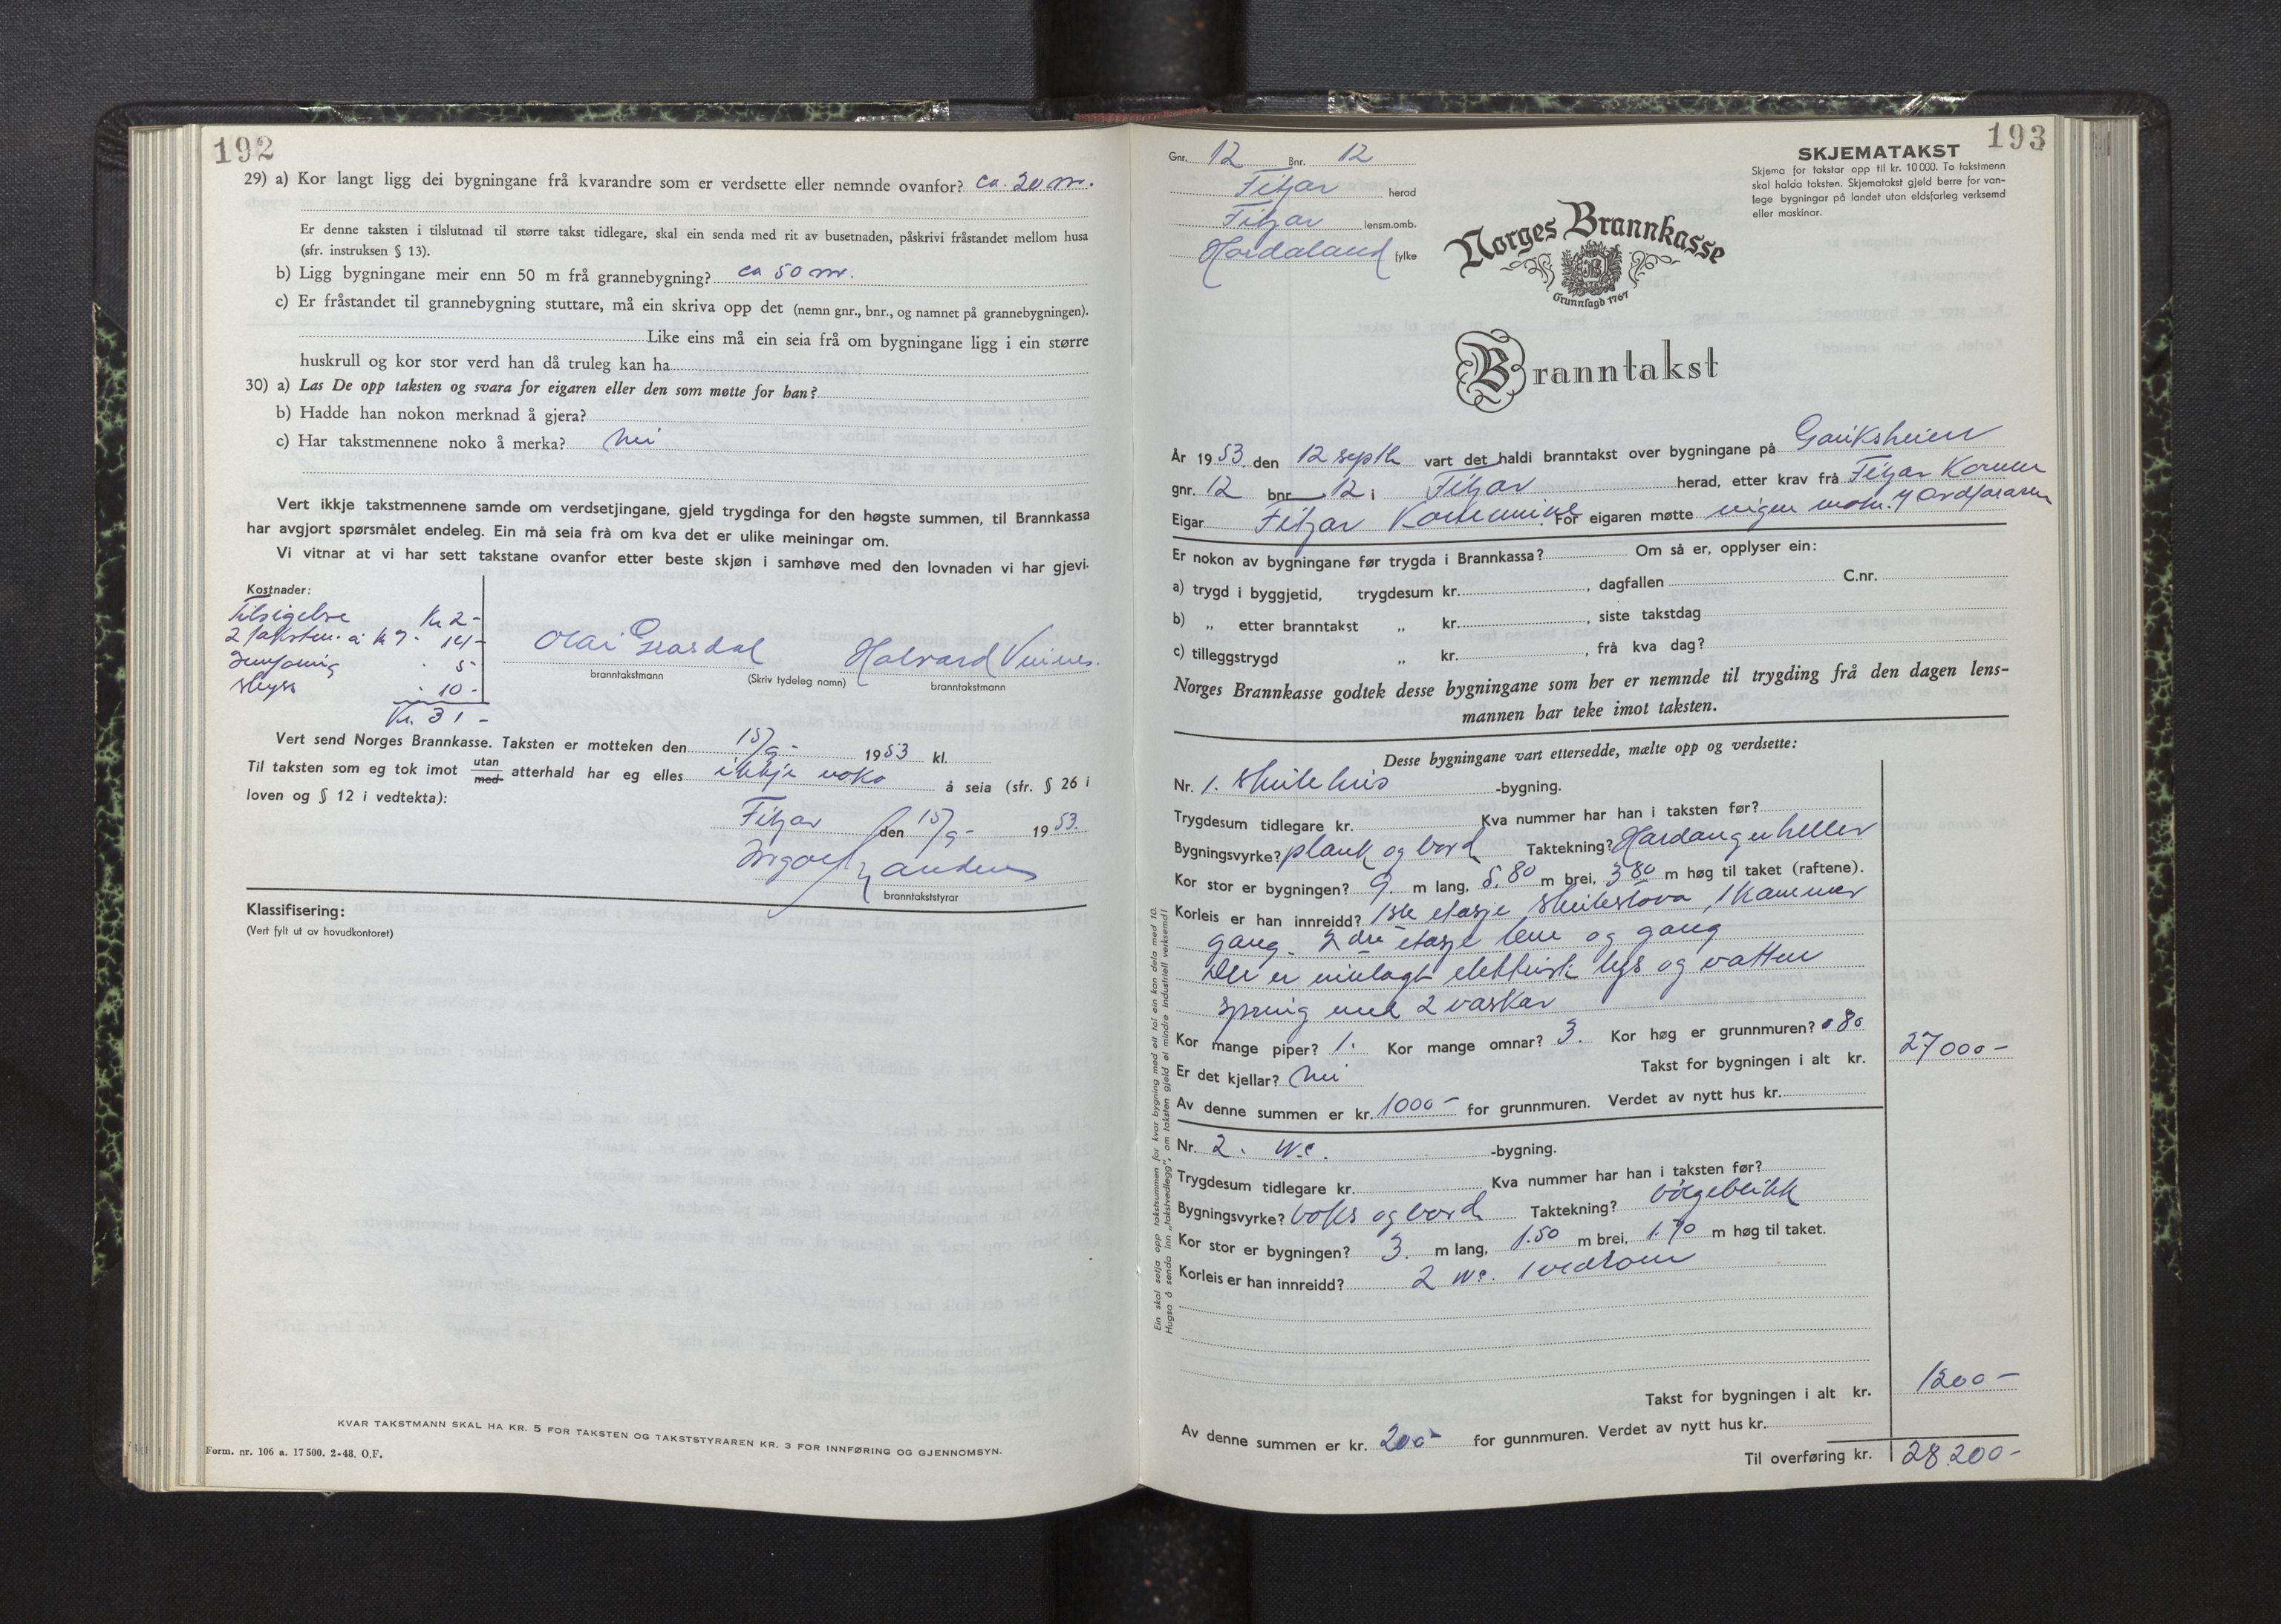 192
29) a) Kor langt ligg dei bygningane frå kvarandre som er verdsette eller nemnde ovanfor? ca. 20 m.
Er denne taksten i tilslutnad til større takst tidlegare, skal ein senda med rit av busetnaden, påskrivi fråstandet mellom husa
(sfr. instruksen § 13).
b) Ligg bygningane meir enn 50 m frå grannebygning? ca 50 m.
c) Er fråstandet til grannebygning stuttare, må ein skriva opp det (nemn gnr., bnr., og namnet på grannebygningen).
Like eins må ein seia frå om bygningane ligg i ein større
huskrull og kor stor verd han då truleg kan ha
30) a) Las De opp taksten og svara for eigaren eller den som møtte for han?
b) Hadde han nokon merknad å gjera?
c) Har takstmennene noko å merka? nei
Vert ikkje takstmennene samde om verdsetjingane, gjeld trygdinga for den høgste summen, til Brannkassa
har avgjort spørsmålet endeleg. Ein må seia frå om kva det er ulike meiningar om.
Vi vitnar at vi har sett takstane ovanfor etter beste skjøn i samhøve med den lovnaden vi har gjevi.
Kostnader:
Tilsigelse Kr 2-
2 takstm. a kr 7- 14-
Innføring 5-
Skyss 10-
Kr. 31-
Olai Halvard
branntakstmann (Skriv tydeleg namn) branntakstmann
Vert send Norges Brannkasse. Taksten er motteken den 15/9- 1953 kl.
Til taksten som eg tok imot utan/med atterhald har eg elles ikkje noko å seia (sfr. § 26 i
loven og § 12 i vedtekta):
Fitjar den 15/9- 1953.
branntakststyrar
Klassifisering:
(Vert fylt ut av hovudkontoret)
KVAR TAKSTMANN SKAL HA KR. 5 FOR TAKSTEN OG TAKSTSTYRAREN KR. 3 FOR INNFØRING OG GJENNOMSYN.
Form. nr. 106 a. 17500. 2-48. O.F.
193
Gnr. 12 Bnr. 12
Fitjar herad
Fitjar lensm.omb.
Hordaland fylke
SKJEMATAKST
Skjema for takstar opp til kr. 10000. To takstmenn
skal halda taksten. Skjematakst gjeld berre for van-
lege bygningar på landet utan eldsfarleg verksemd
eller maskinar.
Norges Brannkasse
Grunnlagd 1767
Branntakst
År 1953 den 12 septb vart det haldi branntakst over bygningane på
gnr. 12 bnr 12 i Fitjar herad, etter krav frå Fitjar Komm
Eigar Fitjar Kommune. For eigaren møtte ingen Ordføraren
Er nokon av bygningane før trygda i Brannkassa? Om så er, opplyser ein:
a) trygd i byggjetid, trygdesum kr. , dagfallen C.nr.
b) „ etter branntakst „ kr. , siste takstdag
c) tilleggstrygd „ kr. , frå kva dag?
Norges Brannkasse godtek desse bygningane som her er nemnde til trygding frå den dagen lens-
mannen har teke imot taksten.
Desse bygningane vart ettersedde, mælte opp og verdsette:
Nr. 1. Skulehus -bygning.
Trygdesum tidlegare kr. Kva nummer har han i taksten før?
Bygningsvyrke? plank og bord Taktekning? Hardangerheller
Kor stor er bygningen? 9. m lang, 5.80 m brei, 3.80 m høg til taket (raftene).
Korleis er han innreidd? 1ste etasje skulestova, 1 kammer
gang. 2dre etasje lem og gang
Der er innlagt elektrisk lys og vatten
spring med 2 vaskar
Kor mange piper? 1. Kor mange omnar? 3. Kor høg er grunnmuren? 0.80
Er det kjellar? nei Takst for bygningen i alt kr. 27000-
Av denne summen er kr. 1000- for grunnmuren. Verdet av nytt hus kr.
Nr. 2. W.c. -bygning.
Trygdesum tidlegare kr. Kva nummer har han i taksten før?
Bygningsvyrke? boks og bord Taktekning? bölgeblikk
Kor stor er bygningen? 3. m lang, 1.50 m brei, 1.70 m høg til taket.
Korleis er han innreidd? 2 wc. 1 vedrom
Takst for bygningen i alt kr. 1200-
Av denne summen er kr. 200- for gunnmuren. Verdet av nytt hus kr.
Til overføring kr. 28.200-
Ein skal setja opp takstsummen for kvar bygning med eit tal ein kan dela med 10.
Hugsa å senda inn „takstvedlegg“, om taksten gjeld ei mindre industriell verksemd!